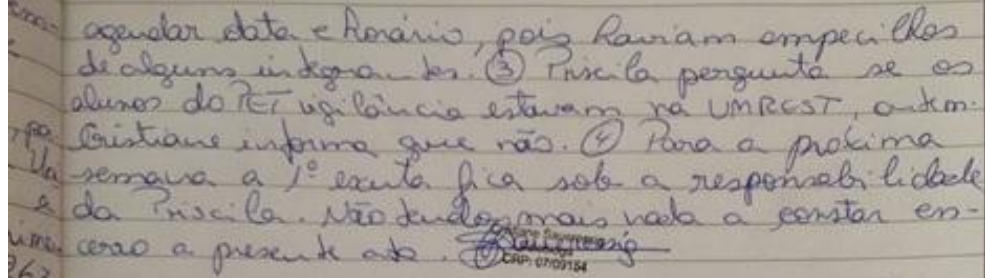 agendar data e horário, pois haviam empecilhos
de alguns integrantes. ③ Priscila pergunta se os
alunos do PET vigilância estavam na UMREST, ontem.
Cristiane informa que não. ④ Para a próxima
semana a 1º escuta fica sob a responsabilidade
da Priscila. Não tendo mais nada a constar en-
cerro a presente ata.
CRP: 07/09154